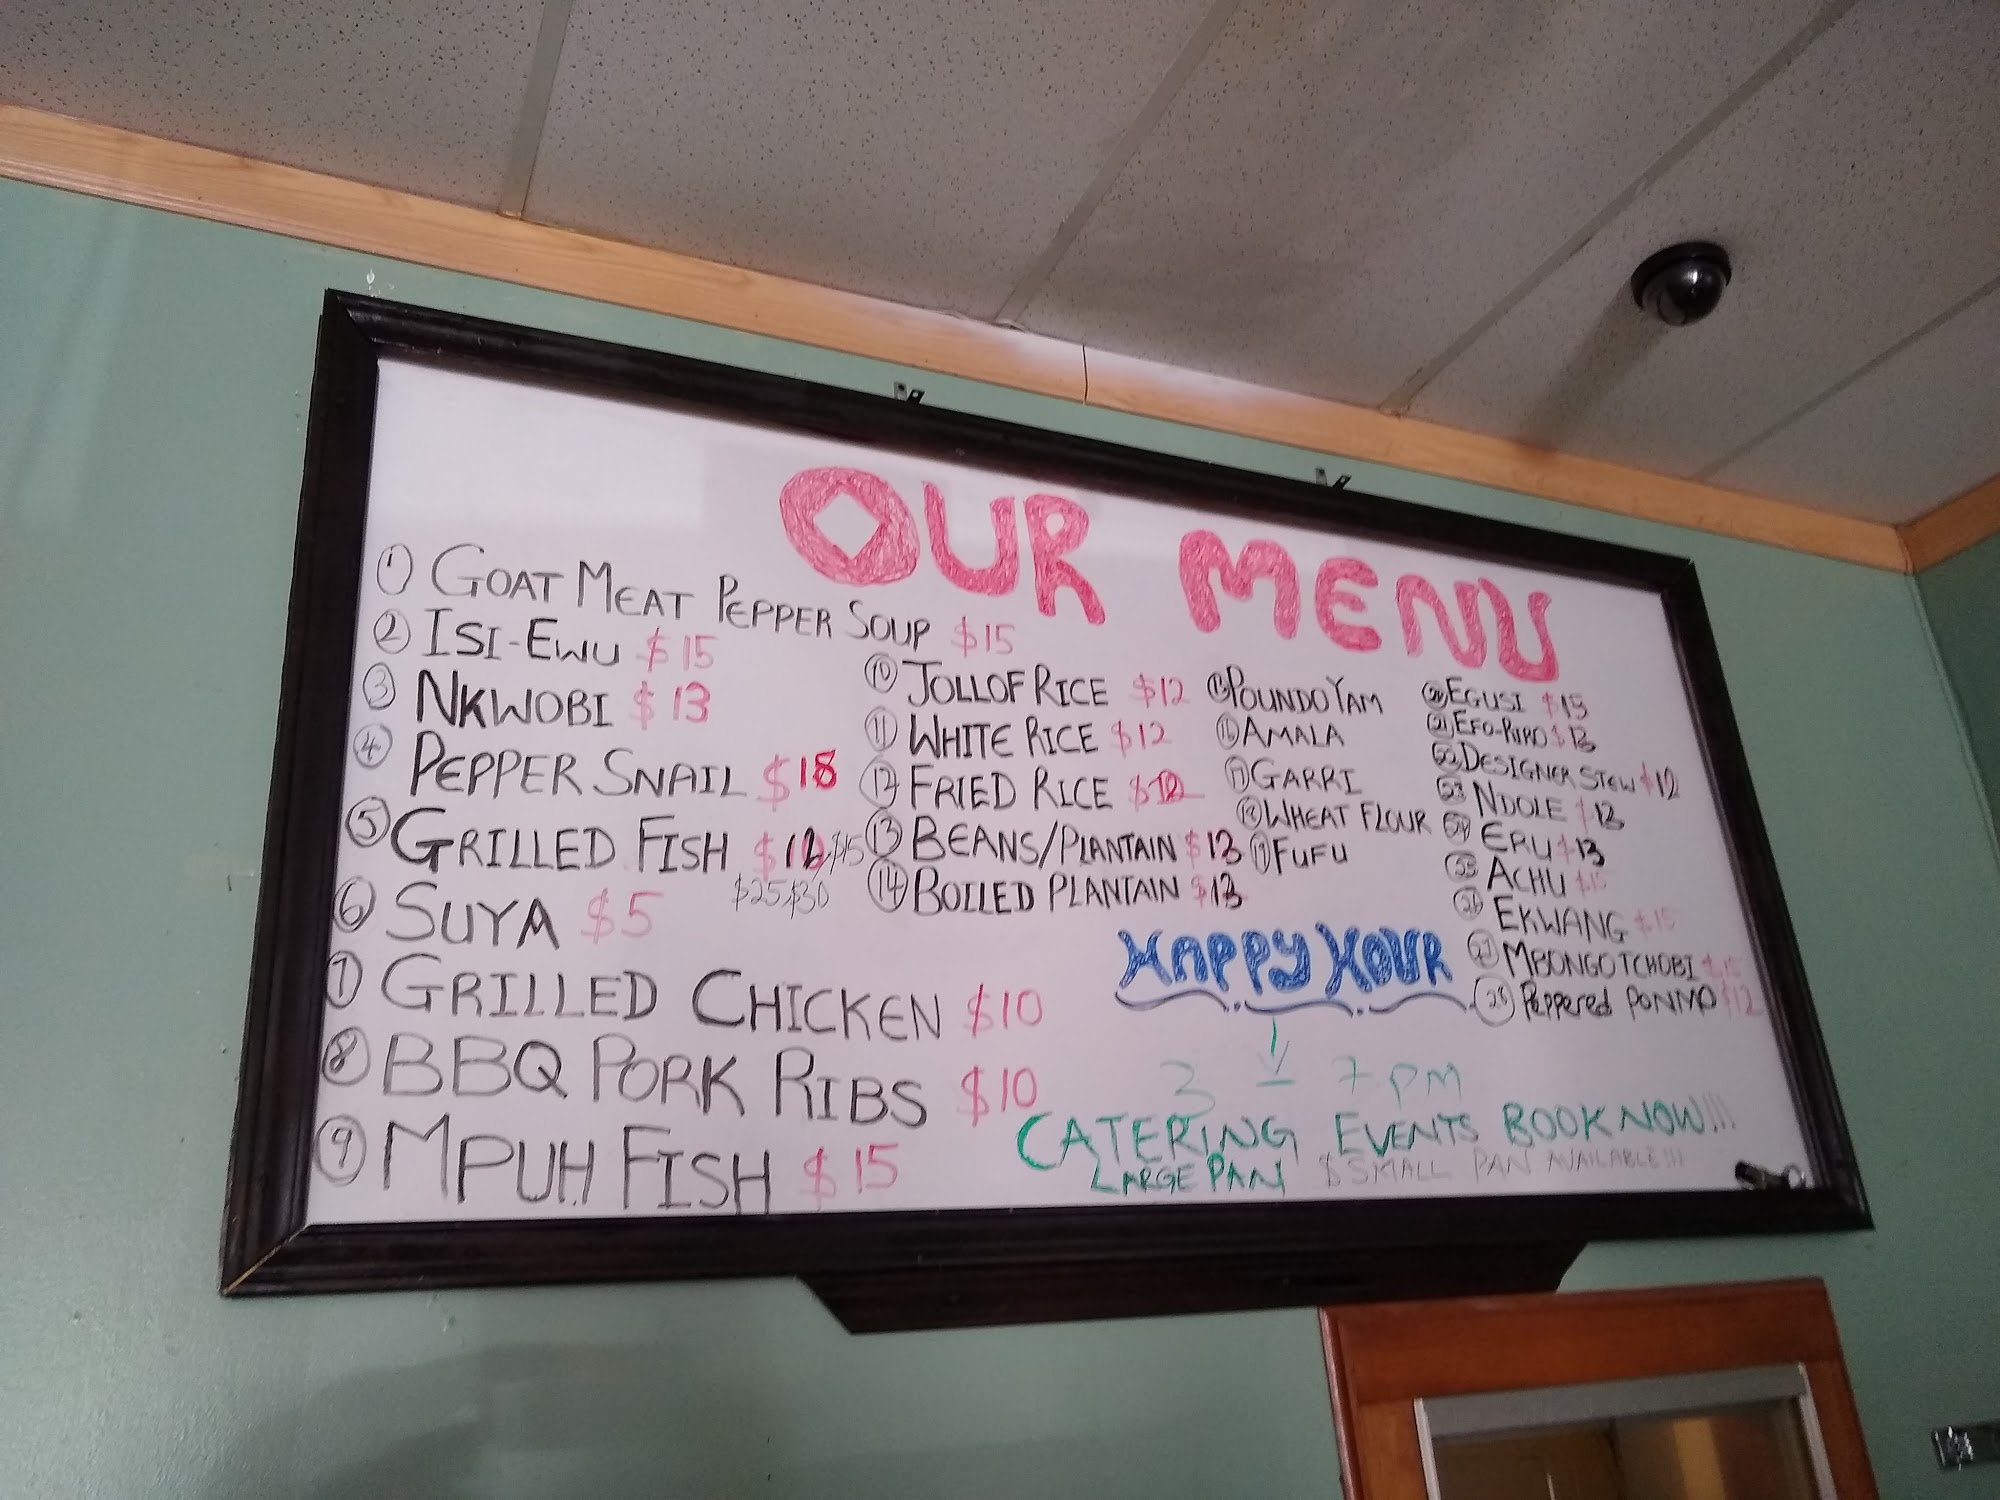 OUR MENU
① GOAT MEAT PEPPER SOUP $15
② ISI-EWU $15
③ NKWOBI $13
④ PEPPER SNAIL $18
⑤ GRILLED FISH $15
$25 $30
⑥ SUYA $5
⑦ GRILLED CHICKEN $10
⑧ BBQ PORK RIBS $10
⑨ MPUH FISH $15
⑩ JOLLOF RICE $12
⑪ WHITE RICE $12
⑫ FRIED RICE $12
⑬ BEANS/PLANTAIN $13
⑭ BOILED PLANTAIN $13
⑮ POUNDO YAM
⑯ AMALA
⑰ GARRI
⑱ WHEAT FLOUR
⑲ FUFU
⑳ EGUSI
㉑ EFO-RIRO $13
㉒ DESIGNER STEW $12
㉓ NDOLE $13
㉔ ERU $13
㉕ ACHU $15
㉖ EKWANG $15
㉗ MBONGO TCHOBI $15
㉘ Peppered PONMO $12
HAPPY HOUR
3 - 7 PM
CATERING EVENTS BOOK NOW!!!
LARGE PAN $ SMALL PAN AVAILABLE!!!